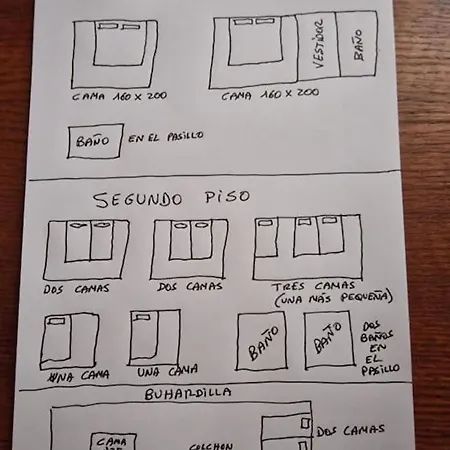 VESTIDOR
BAÑO
CAMA 160 X 200
CAMA 160 X 200
BAÑO
EN EL PASILLO
SEGUNDO PISO
DOS CAMAS
DOS CAMAS
TRES CAMAS
(UNA MÁS PEQUEÑA)
UNA CAMA
UNA CAMA
BAÑO
BAÑO
DOS
BAÑOS
EN
EL
PASILLO
BUHARDILLA
CAMA
COLCHON
DOS CAMAS